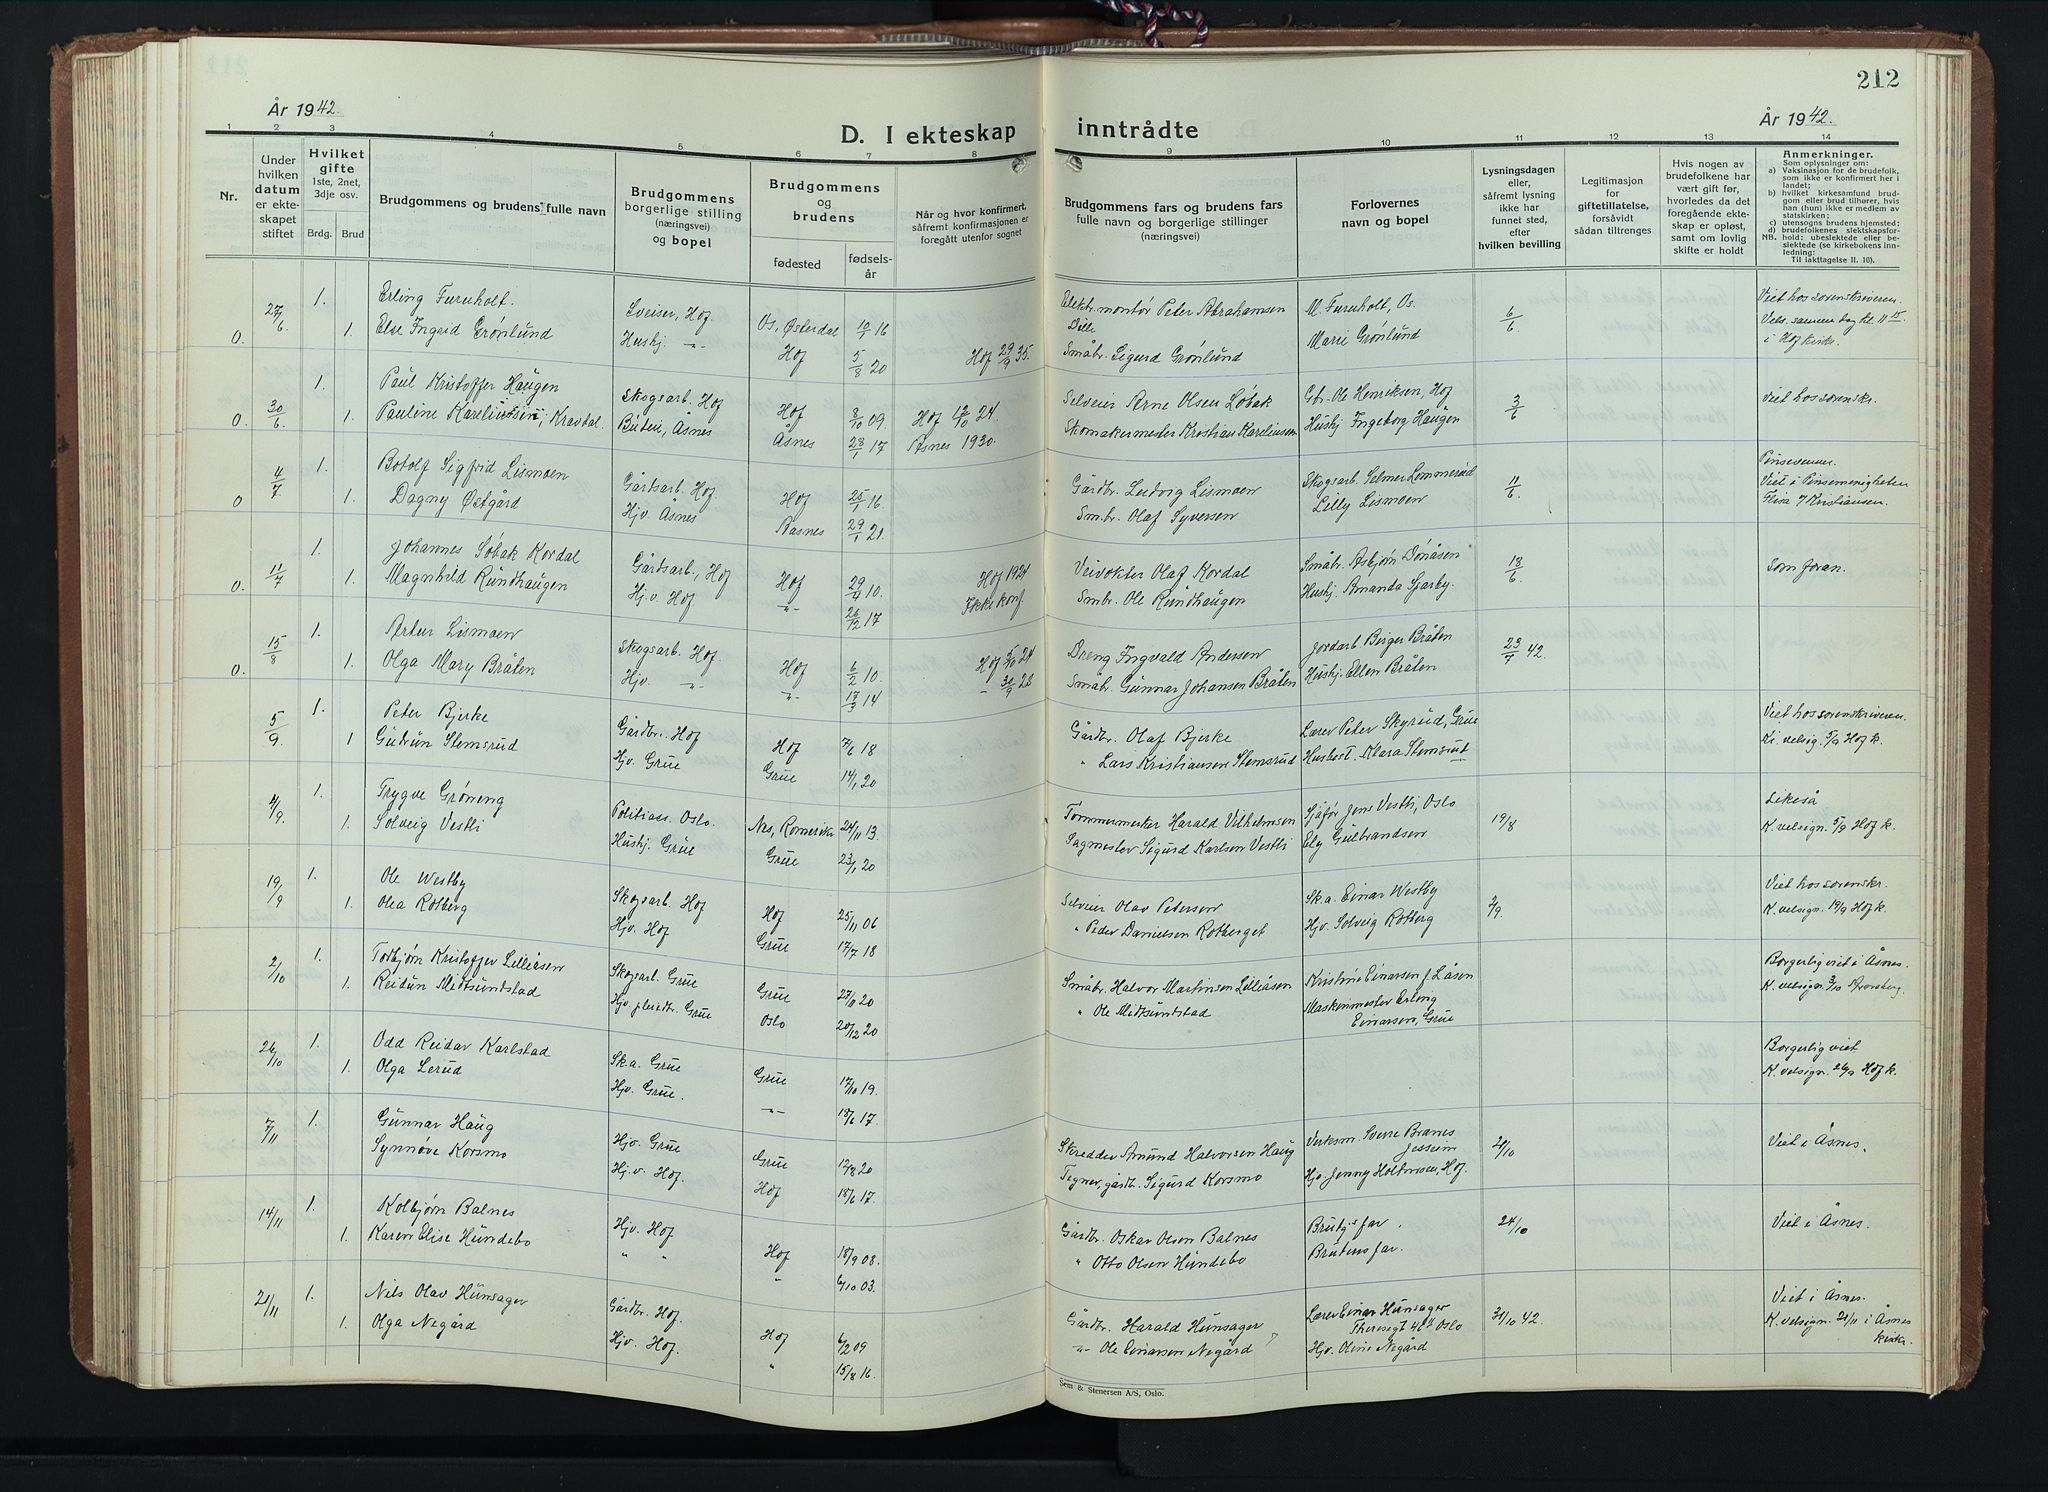 212
År 1942.
D. I ekteskap inntrådte
År 1942.
1 2 3 4 5 6 7 8 9 10 11 12 13 14
Nr.
Under hvilken datum er ekteskapet stiftet
Hvilket gifte 1ste, 2net, 3dje osv.
Brdg. Brud
Brudgommens og brudens fulle navn
Brudgommens borgerlige stilling (næringsvei) og bopel
Brudgommens og brudens
fødested
fødselsår
Når og hvor konfirmert, såfremt konfirmasjonen er foregått utenfor sognet
Brudgommens fars og brudens fars fulle navn og borgerlige stillinger (næringsvei)
Forlovernes navn og bopel
Lysningsdagen eller, såfremt lysning ikke har funnet sted, efter hvilken bevilling
Legitimasjon for giftetillatelse, forsåvidt sådan tiltrenges
Hvis nogen av brudefolkene har vært gift før, hvorledes da det foregående ekteskap er opløst, samt om lovlig skifte er holdt
Anmerkninger.
Som oplysninger om:
a) Vaksinasjon for de brudefolk, som ikke er konfirmert her i landet;
b) hvilket kirkesamfund brudgom eller brud tilhører, hvis han (hun) ikke er medlem av statskirken;
c) utensogns brudens hjemsted;
d) brudefolkenes slektskapsforhold: ubeslektede eller beslektede (se kirkebokens innledning:
NB. Til iakttagelse II. 10).
27/6 1. Erling Furuholt. Sveiser, Hof Os, Østerdal 10/1 16 Elektr. montør Peter Abrahamsen Dille M. Furuholt, Os. 6/6 Viet hos sorenskriveren.
0. 1. Else Ingrid Grønlund Hushj. -"- Hof 5/8 20 Hof 29/9 35. Småbr. Sigurd Grønlund Marie Grønlund Vels. samme dag kl. 11 15 i Hof kirke.
30/6 1. Paul Kristoffer Haugen Skogsarb. Hof Hof 8/10 09. Hof 12/10 24 Selveier Arne Olsen Løbak Gbr. Ole Henriksen, Hof 3/6 Viet hos sorenskr.
0. 1. Pauline Kareliussen, Kravdal. Åsnes Åsnes 23/1 17 Åsnes 1930. Skomakermester Kristian Kareliussen Hushj. Ingeborg Haugen
4/7 1. Botolf Sigfrid Lismoen Gårdsarb. Hof Hof 25/1 16. Gårdbr. Ludvig Lismoen Skogsarb. Selmer Lommerud 11/6 Pinsevenner.
0 1. Dagny Østgård Hjv. Åsnes Åsnes 29/1 21 Smbr. Olaf Syversen Lilly Lismoen Viet i Pinsemenigheten
Kristiansen.
11/7 1. Johannes Søbak Kordal Gårdsarb., Hof Hof 29/4 10. Hof 1924 Veivokter Olaf Kordal Småbr. Asbjørn Dønåsen 18/6 Som foran.
0. 1. Magnhild Rundhaugen Hj.v. Hof -"- 26/12 17 Ikke konf. Smbr. Ole Rundhaugen Hushj. Amanda Sparby.
15/8 1. Artur Lismoen Skogsarb. Hof. Hof 6/2 10. Hof 5/10 24 Dreng Ingvald Andersen Jordarb. Birger Bråten 23/7 42.
0. 1. Olga Mary Bråten Hjv. -"- -"- 17/3 14 - 30/9 28 Småbr. Gunnar Johansen Bråten Hushj. Ellen Bråten
5/9. 1. Peter Bjerke Gårdbr. Hof Hof 7/6 18 Gårdbr. Olaf Bjerke Lærer Peter Skyrud, Grue Viet hos sorenskriveren.
1 Gudrun Stemsrud Hjv. Grue Grue 14/1 20 " Lars Kristiansen Stemsrud Husbest. Klara Stemsrud Ki. velsig. 5/9 Hof k.
4/9. 1. Trygve Grøneng Politiass. Oslo. Nes, Romerike 24/11 13. Tømmermerker Harald Vilhelmsen Sjåfør Jens Vestli, Oslo 19/8 Likeså
1. Solveig Vestli Hushj. Grue Grue 23/1 20 Sagmester Sigurd Karlsen Vestli Ely Gulbrandsen K. velsign. 5/9 Hof k.
19/9 1. Ole Westby Skogsarb. Hof Hof 25/11 06 Selveier Olav Pedersen Sk.a. Einar Westby 2/9. Viet hos sorenskr.
1. Olea Rotberg Hjv. Hof Grue 17/7 18 " Peder Danielsen Rotberget Hjv. Solveig Rotberg K. velsign. 19/9 Hof k.
2/10 1. Torbjørn Kristoffer Lilleåsen Skogsarb. Grue Grue 27/10 20 Småbr. Halvor Martinsen Lilleåsen Kristine Einarsen f. Låsen Borgerlig viet i Åsnes.
1. Reidun Midtsundstad Hjv. Grue Oslo 20/12 20 " Ole Midtsundstad Maskinmester Erling Einarsen, Grue K. velsign. 3/10
26/10 1. Odd Reidar Karlstad Sk.a. Grue Grue 17/10 19. Borgerlig viet
1. Olga Lerud Hjv. Grue. -"- 18/6 17. K. velsign. 26/9 Hof k.
7/11 1. Gunnar Haug Hjv. Grue Grue 12/8 20 Skredder Amund Halvorsen Haug Verksm. Sverre Branes Jessheim 21/10 Viet i Åsnes.
Synnøve Korsmo Hj.v. Hof. Hof 18/6 17. Tegner, gårdb. Sigurd Korsmo Hjv Jenny Holtmoen, Hof.
14/11 1. Kolbjørn Balnes Hjv. Hof Hof 18/9 08. Gårdbr. Oskar Olsen Balnes Brudg.s far. 24/10 Viet i Åsnes.
1. Karen Elise Hundebo " " " 6/10 03. " Otto Olsen Hundebo Brudens far.
21/11 1. Nils Olav Hunsager Gårdbr. Hof. Hof 6/2 09 Gårdbr. Harald Hunsager Lærer Einar Hunsager Theresegt 46 Oslo 31/10 42. Viet i Åsnes.
1. Olga Negård Hjv. Hof. " 15/8 16. -"- Ole Einarsen Negård Hjv. Oline Negård K. velsign. 21/11 i Åsnes kirke.
Sem & Stenersen A/S, Oslo.